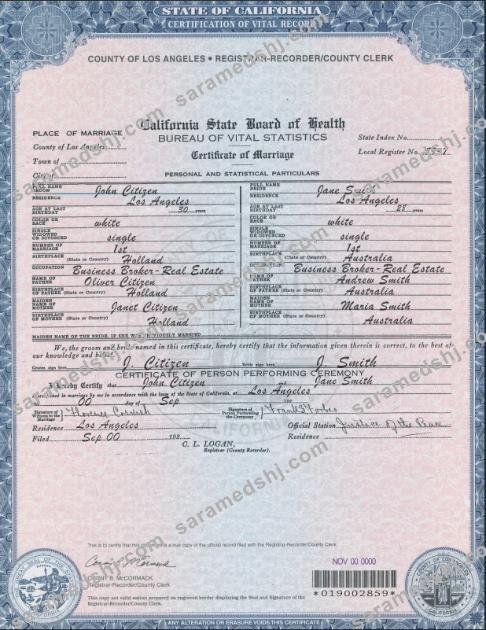 STATE OF CALIFORNIA
CERTIFICATION OF VITAL RECORD
COUNTY OF LOS ANGELES • REGISTRAR-RECORDER/COUNTY CLERK
California State Board of Health
BUREAU OF VITAL STATISTICS
Certificate of Marriage
PLACE OF MARRIAGE
County of Los Angeles
Town of
City of
State Index No.
Local Register No.
PERSONAL AND STATISTICAL PARTICULARS
FULL NAME GROOM John Citizen
FULL NAME BRIDE Jane Smith
RESIDENCE Los Angeles
RESIDENCE Los Angeles
AGE AT LAST BIRTHDAY 30 years
AGE AT LAST BIRTHDAY 28 years
COLOR OR RACE white
COLOR OR RACE white
SINGLE WIDOWED OR DIVORCED single
SINGLE WIDOWED OR DIVORCED single
NUMBER OF MARRIAGE 1st
NUMBER OF MARRIAGE 1st
BIRTHPLACE (State or Country) Holland
BIRTHPLACE (State or Country) Australia
OCCUPATION Business Broker-Real Estate
OCCUPATION Business Broker-Real Estate
NAME OF FATHER Oliver Citizen
NAME OF FATHER Andrew Smith
BIRTHPLACE OF FATHER (State or Country) Holland
BIRTHPLACE OF FATHER (State or Country) Australia
MAIDEN NAME OF MOTHER Janet Citizen
MAIDEN NAME OF MOTHER Maria Smith
BIRTHPLACE OF MOTHER (State or Country) Holland
BIRTHPLACE OF MOTHER (State or Country) Australia
MAIDEN NAME OF THE BRIDE, IF SHE WAS PREVIOUSLY MARRIED
We, the groom and bride named in this certificate, hereby certify that the information given therein is correct, to the best of
our knowledge and belief.
Groom sign here J. Citizen
Bride sign here J. Smith
CERTIFICATE OF PERSON PERFORMING CEREMONY
I hereby Certify that John Citizen and Jane Smith
were joined in marriage by me in accordance with the laws of the State of California, at Los Angeles
00 day of Sep
Signature of Witness to the Marriage
Signature of Person Performing the Ceremony
Residence Los Angeles
Official Station Justice of the Peace
Filed Sep 00
Residence
C. L. LOGAN,
Registrar (County Recorder).
This is to certify that this document is a true copy of the official record filed with the Registrar-Recorder/County Clerk.
CONNY B. McCORMACK
Registrar-Recorder/County Clerk
NOV 00 0000
This copy not valid unless prepared on engraved border displaying the Seal and Signature of the
Registrar-Recorder/County Clerk.
*019002859*
ANY ALTERATION OR ERASURE VOIDS THIS CERTIFICATE
saramedshj.com